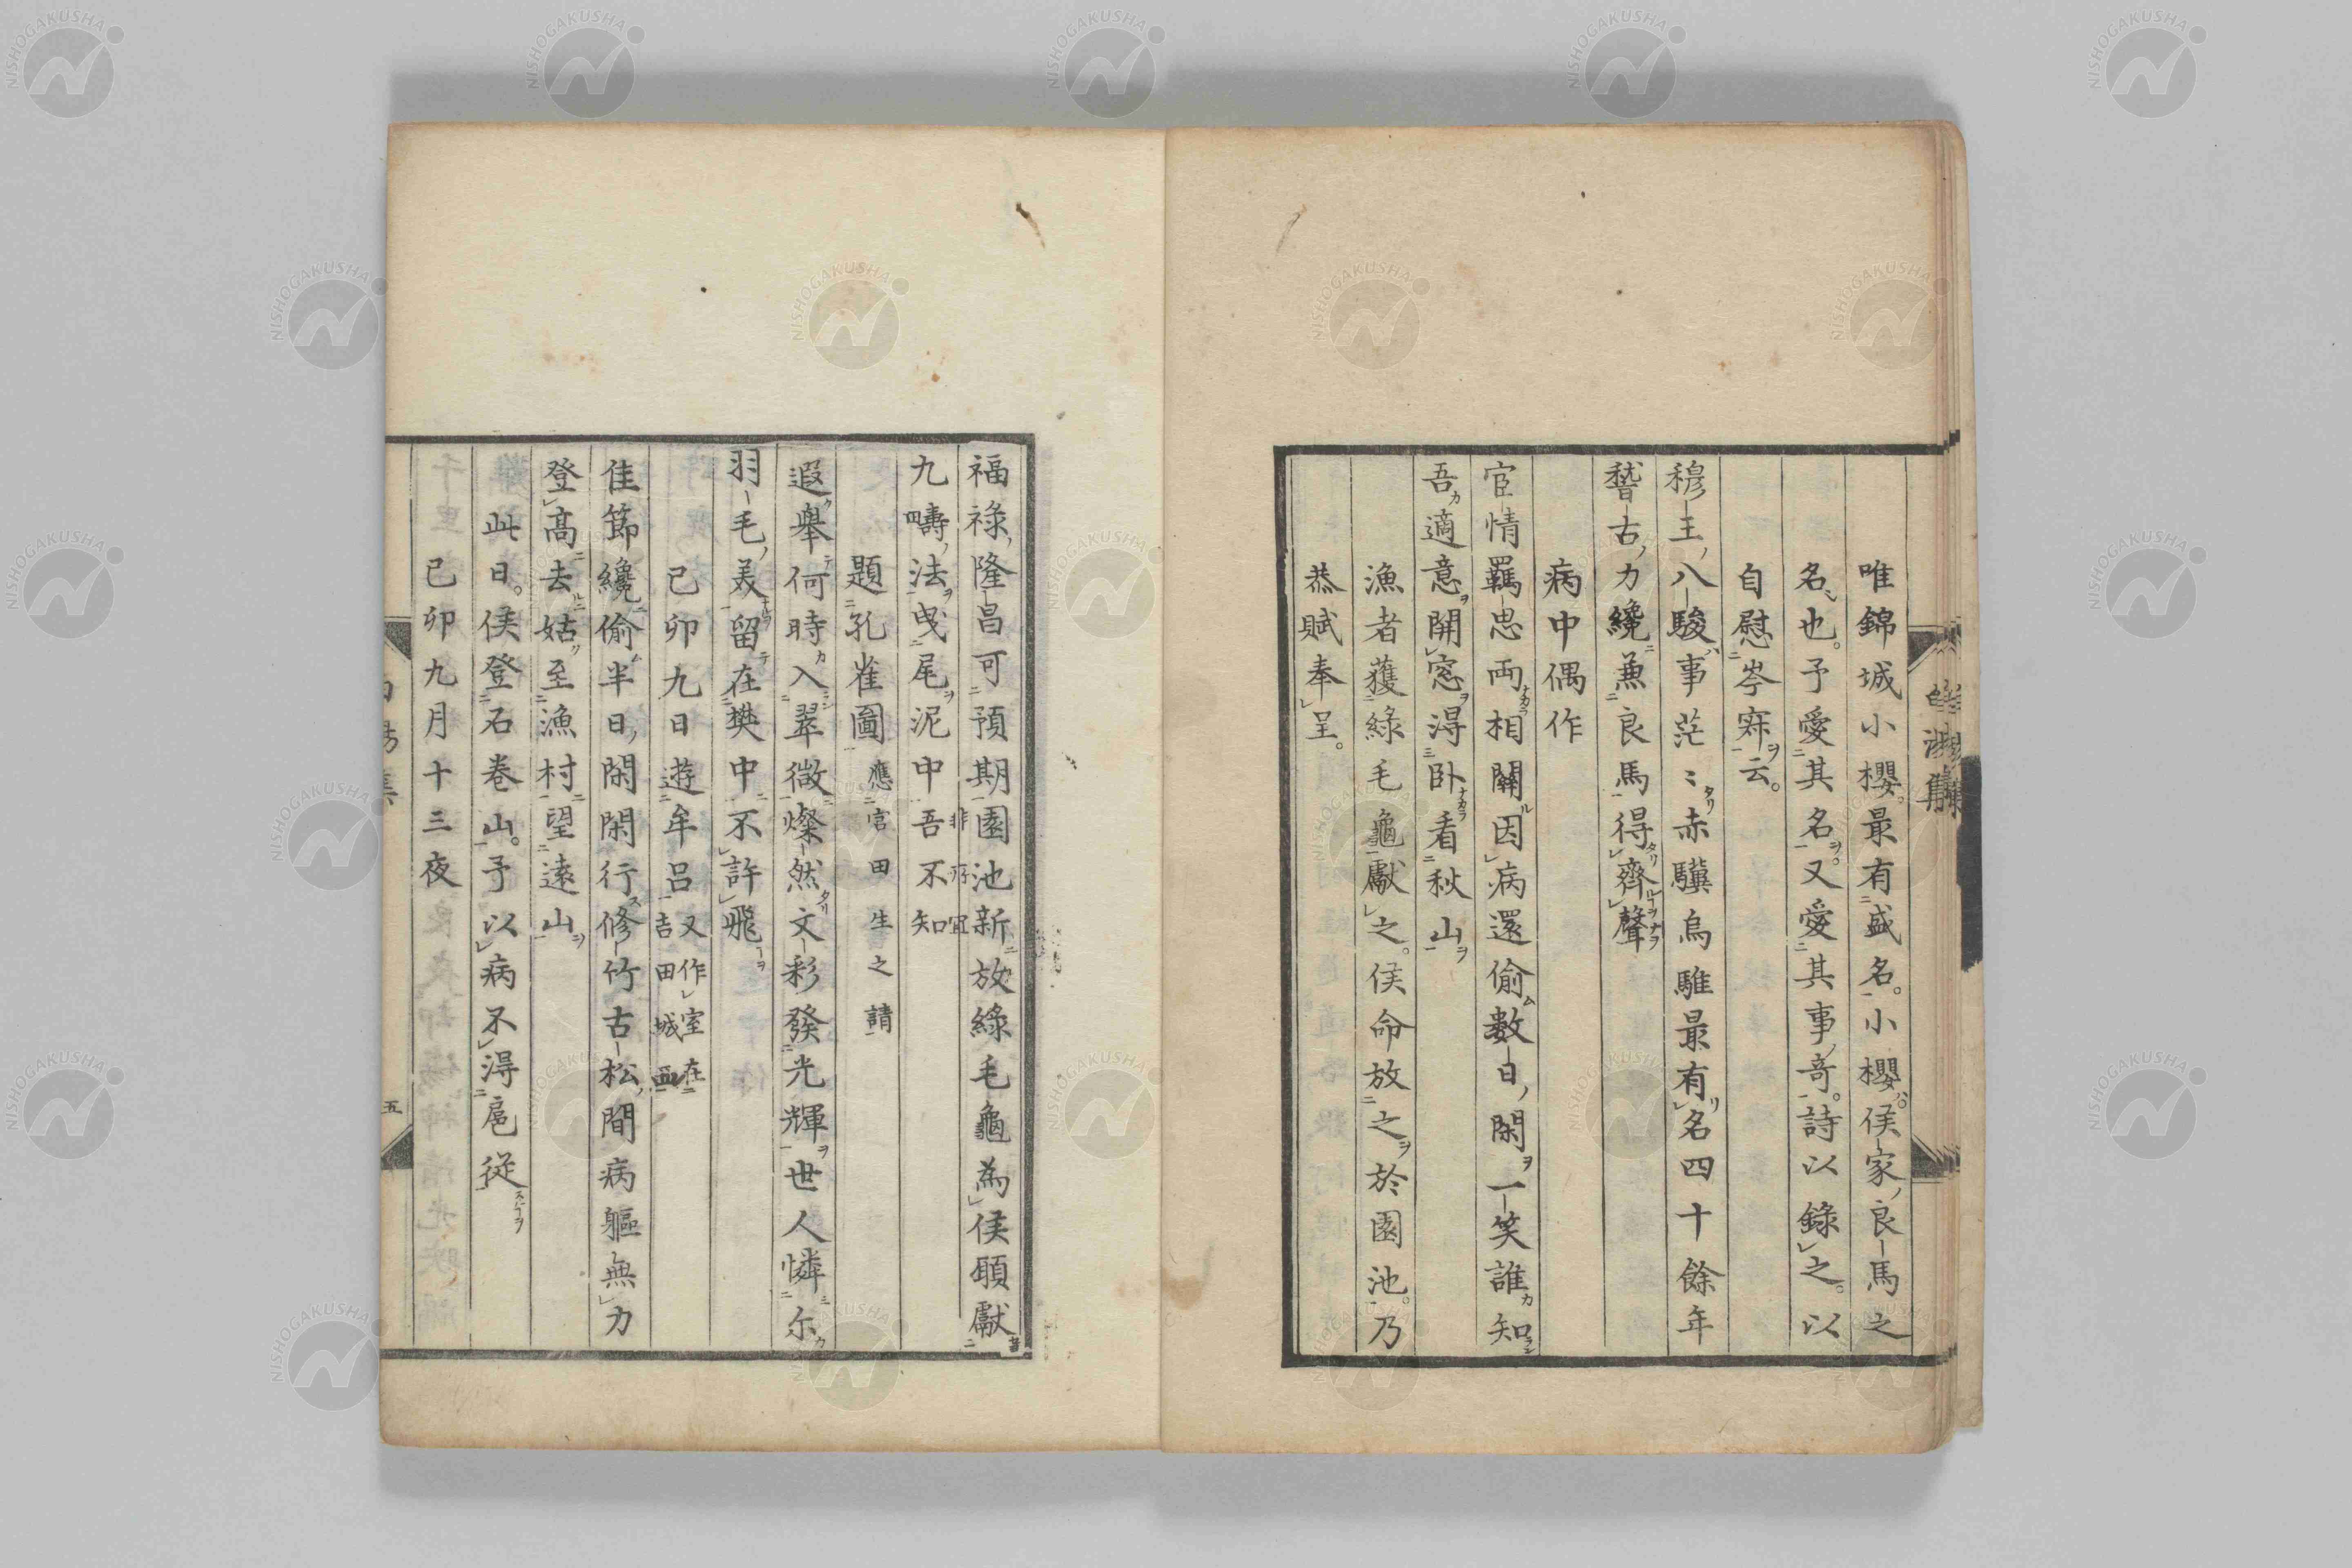 唯錦城小櫻。最有盛名。小櫻。侯家良馬之
名也。予愛其名。又愛其事奇。詩以錄之。以
自慰岑寂云。
穆王八駿事茫々赤驥烏騅最有名四十餘年
稽古力纔兼良馬得齊聲
病中偶作
宦情羈思両相關因病還偷數日閑一笑誰知
吾適意開窓得臥看秋山
漁者獲綠毛龜獻之。侯命放之於園池。乃
恭賦奉呈。
福祿隆昌可預期園池新放綠毛龜為侯願獻
九疇法曳尾泥中吾不知
非所宜
題孔雀圖 應官田生之請
遐舉何時入翠微燦然文彩發光輝世人憐尔
羽毛美留在樊中不許飛
己卯九日遊牟呂 又作室在吉田城西
佳節纔偷半日閑閑行修竹古松間病軀無力
登高去姑至漁村望遠山
此日。侯登石巻山。予以病不得扈從
己卯九月十三夜
五